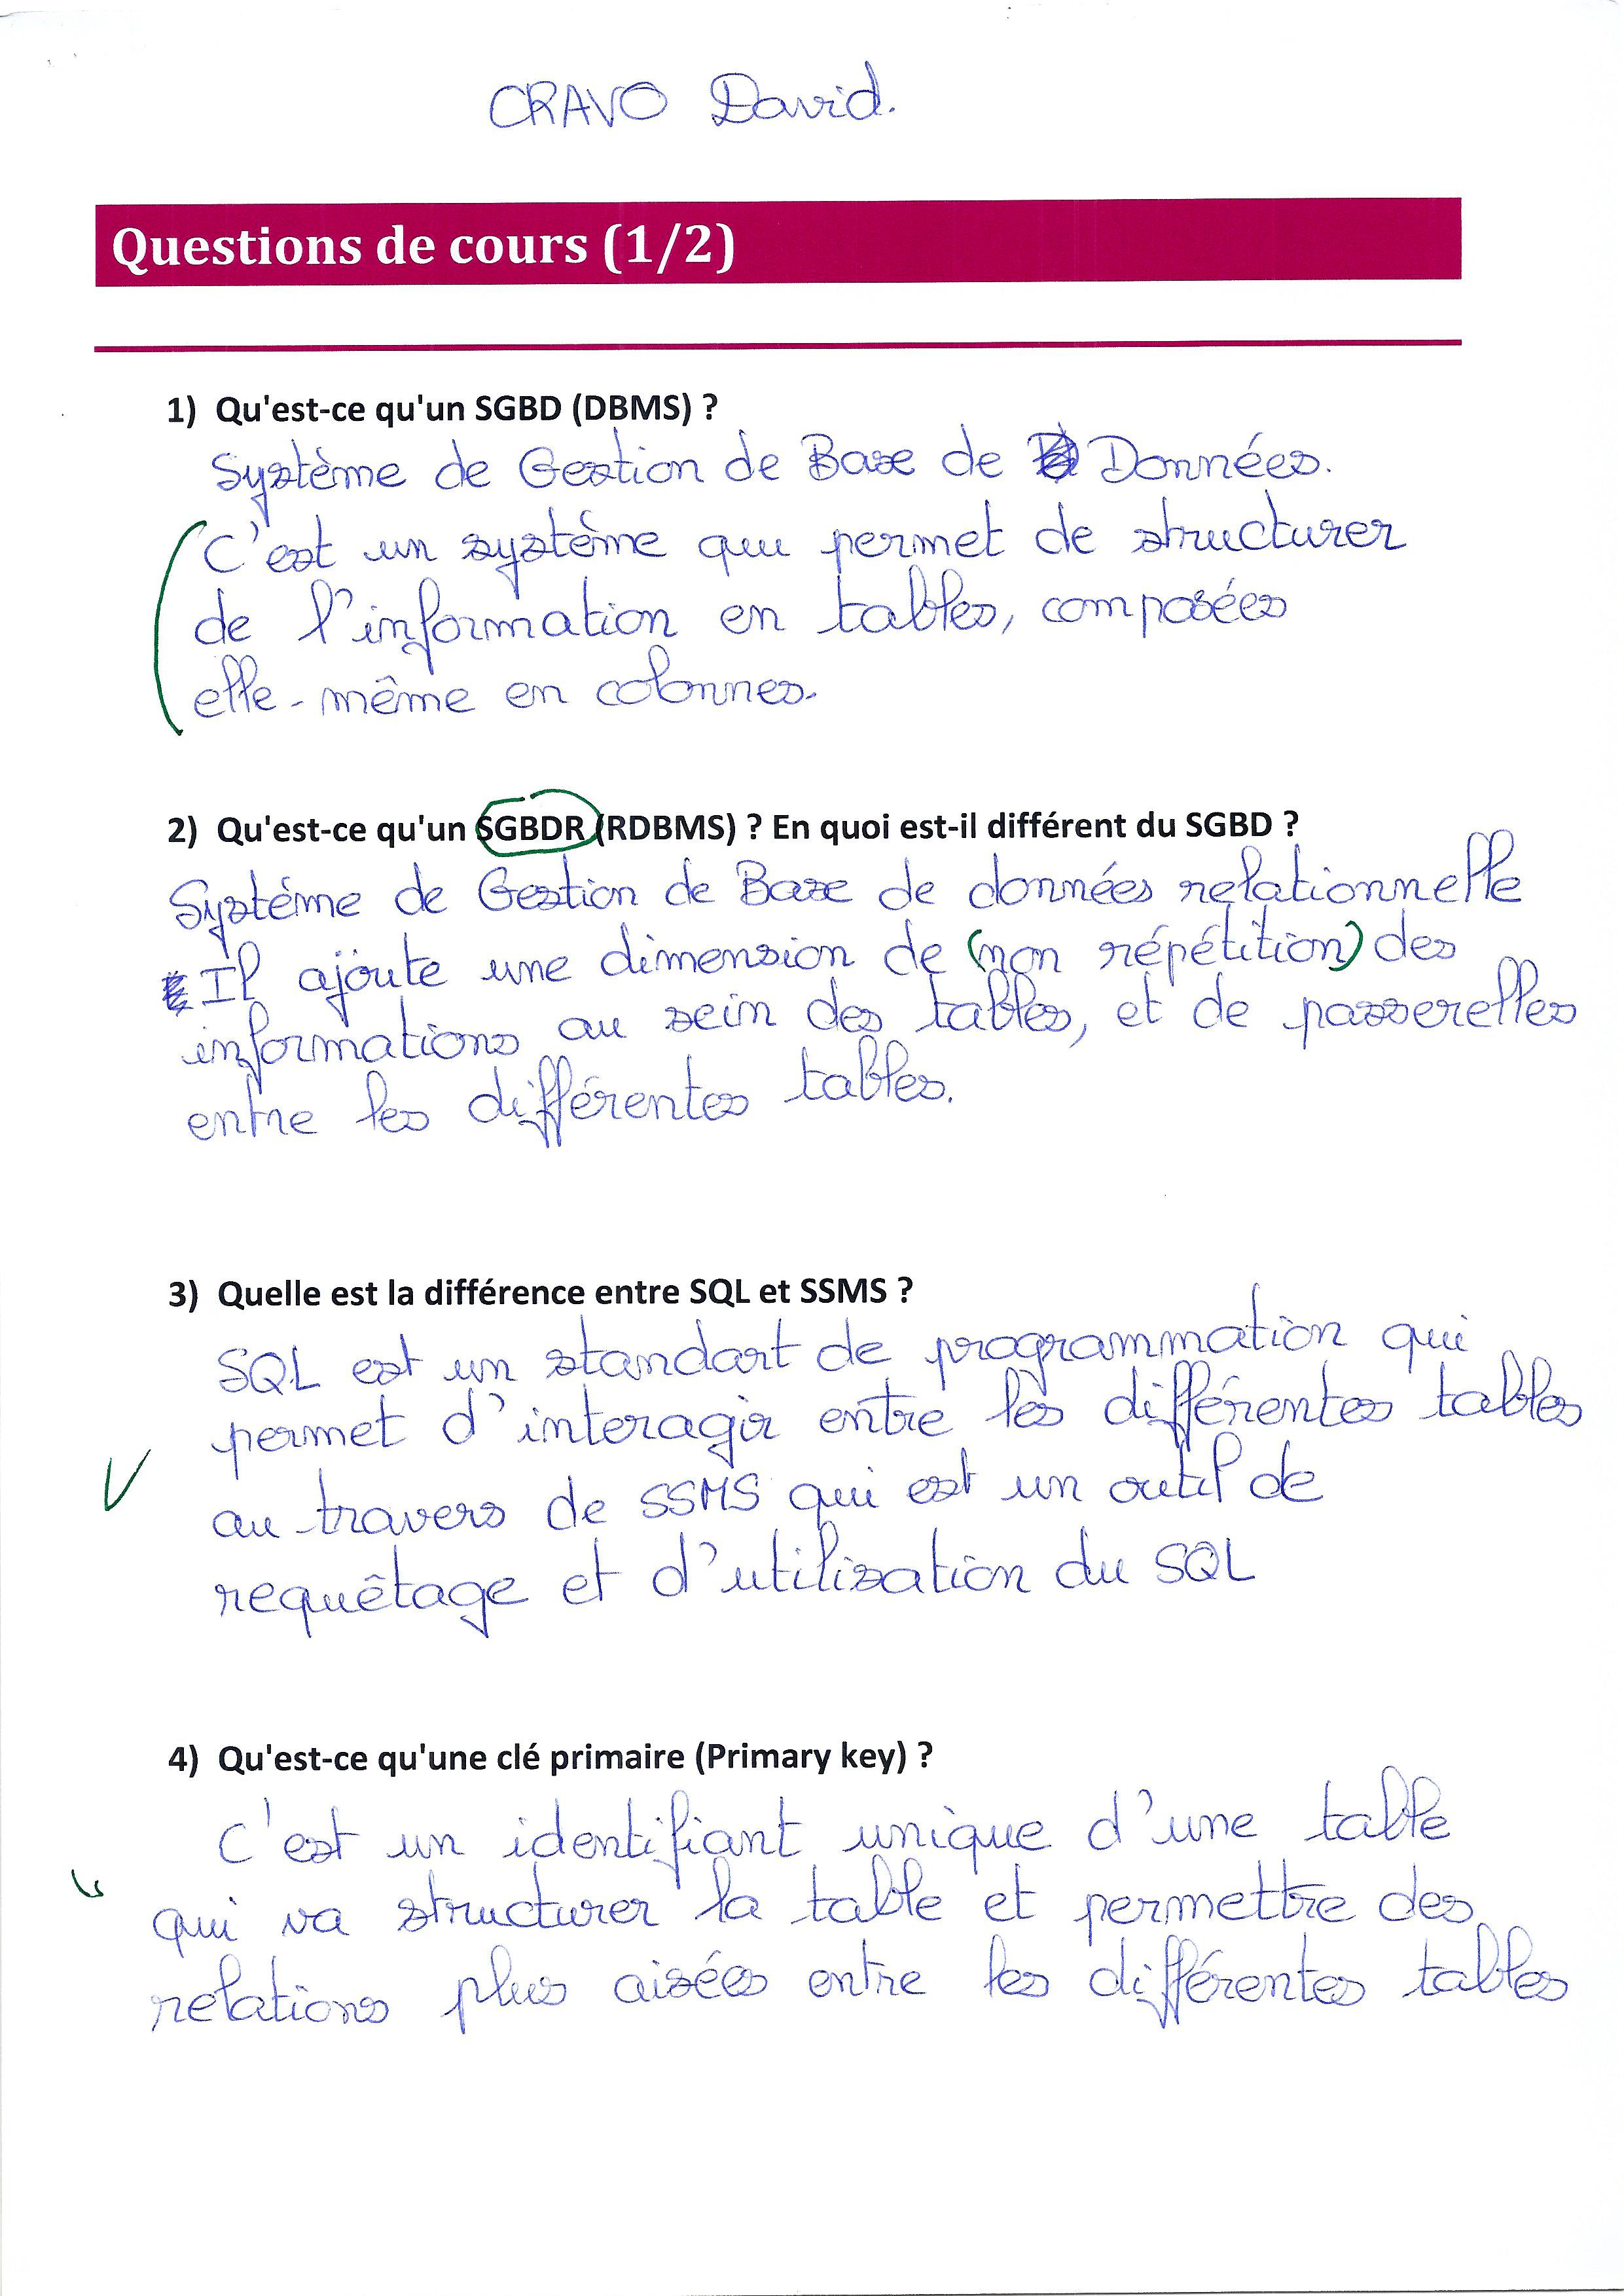 CRAVO David.
Questions de cours (1/2)
1) Qu'est-ce qu'un SGBD (DBMS) ?
Système de Gestion de Base de Données.
C'est un système qui permet de structurer
de l'information en tables, composées
elle-même en colonnes.
2) Qu'est-ce qu'un SGBDR (RDBMS) ? En quoi est-il différent du SGBD ?
Système de Gestion de Base de données relationnelle
Il ajoute une dimension de (non répétition) des
informations au sein des tables, et de passerelles
entre les différentes tables.
3) Quelle est la différence entre SQL et SSMS ?
SQL est un standart de programmation qui
permet d'interagir entre les différentes tables
au travers de SSMS qui est un outil de
requêtage et d'utilisation du SQL
4) Qu'est-ce qu'une clé primaire (Primary key) ?
C'est un identifiant unique d'une table
qui va structurer la table et permettre des
relations plus aisées entre les différentes tables